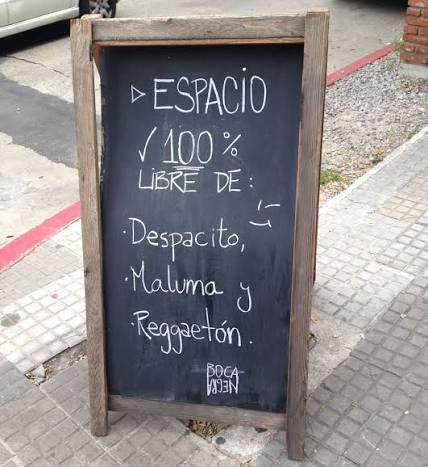 ▷ ESPACIO
✓ 100 %
LIBRE DE :
· Despacito,
· Maluma y
· Reggaetón.
BOCA
NEGRA